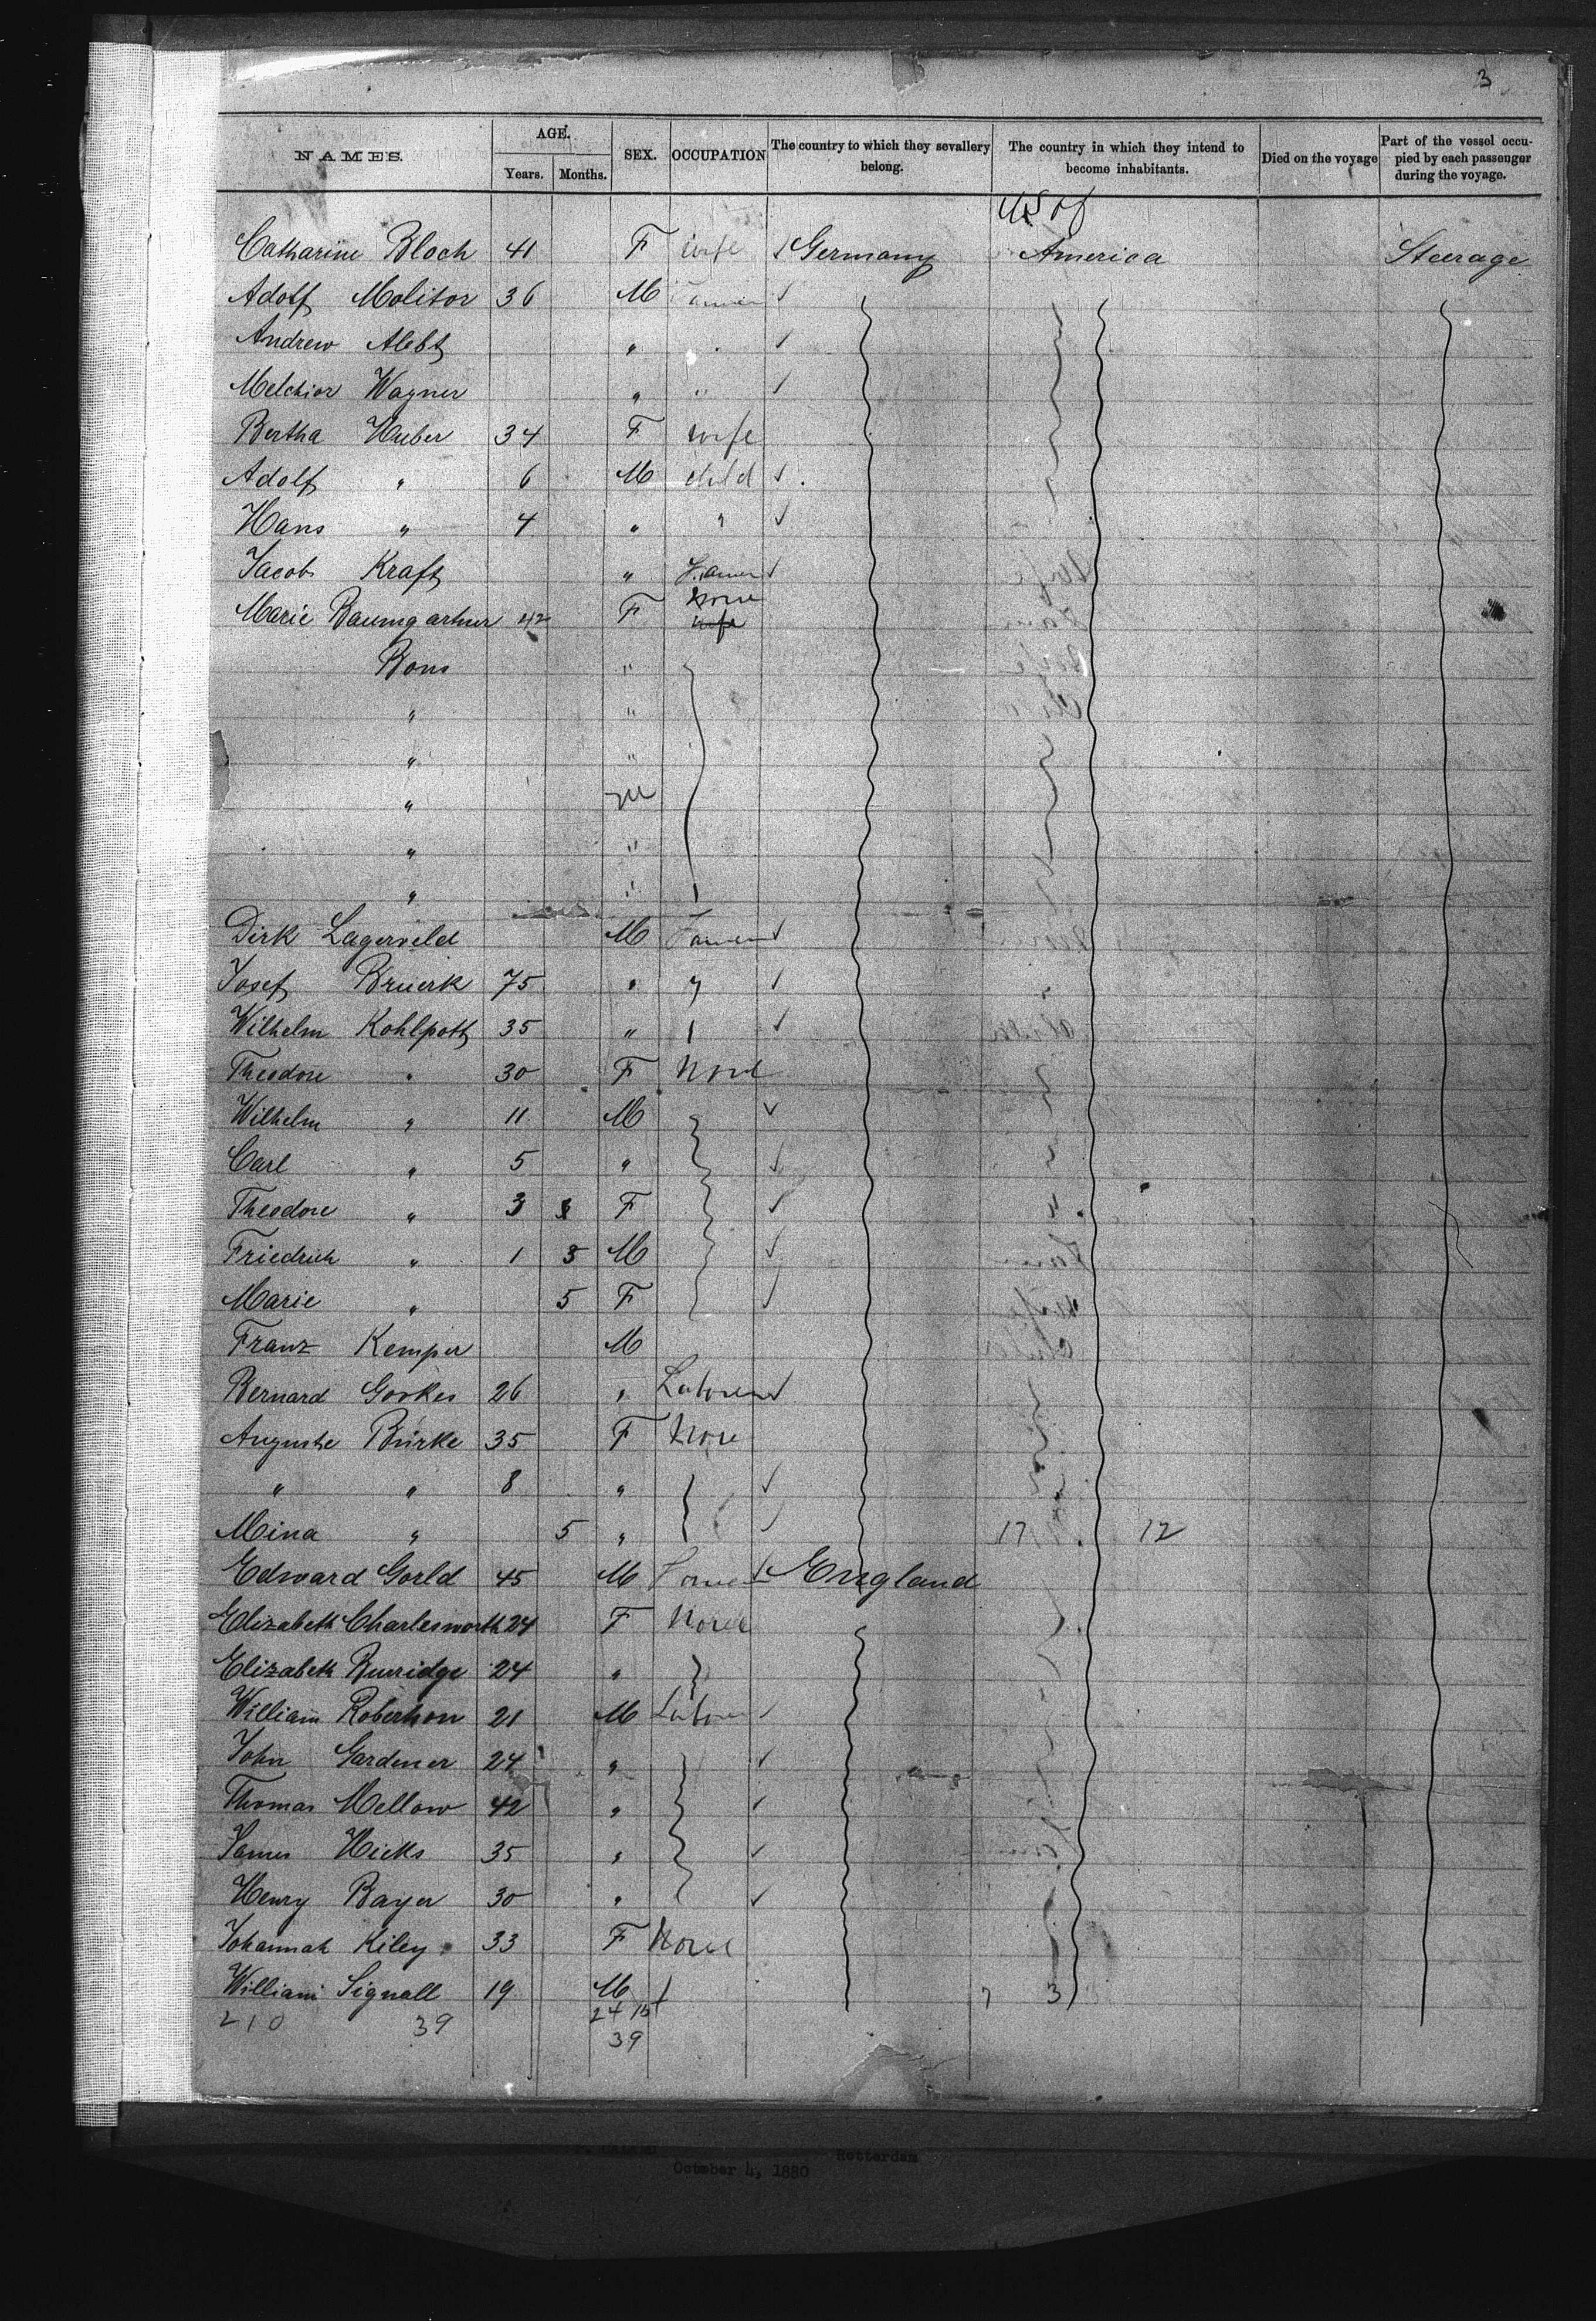 3
NAMES. AGE. Years. Months. SEX. OCCUPATION The country to which they sevallery belong. The country in which they intend to become inhabitants. Died on the voyage Part of the vessel occupied by each passenger during the voyage.
US of
Catharine Bloch 41 F wife Germany America Steerage
Adolf Molitor 36 M
Andrew "
Melchior Wagner " "
Bertha Huber 34 F wife
Adolf " 6 M child
Hans " 4 " "
Jacob Kraft "
None
Marie Baumgartner 42 F wife
Bons "
" "
" "
" M
" "
" "
Dirk Lagerveld M Farmer
Josef Bruerk 75 " "
Wilhelm Kohlpott 35 "
Theodore " 30 F None
Wilhelm " 11 M
Carl " 5 "
Theodore " 3 F
Friedrich " 1 3 M
Marie " 5 F
Franz Kemper M
Bernard Gorkes 26 " Laborer
Auguste Bürke 35 F None
" " 8 "
Mina " 5 " 17 12
Edward Gorld 45 M England
Elizabeth Charlesworth 24 F None
Elizabeth Burridge 24 "
William Robertson 21 M Laborer
John Gardener 24 "
Thomas Mellow 42 "
James Hicks 35 "
Henry Bayer 30 "
Johannah Kiley 33 F None
William Signall 19 M 7 3
210 39 24 15
39
Rotterdam
October 4, 1880